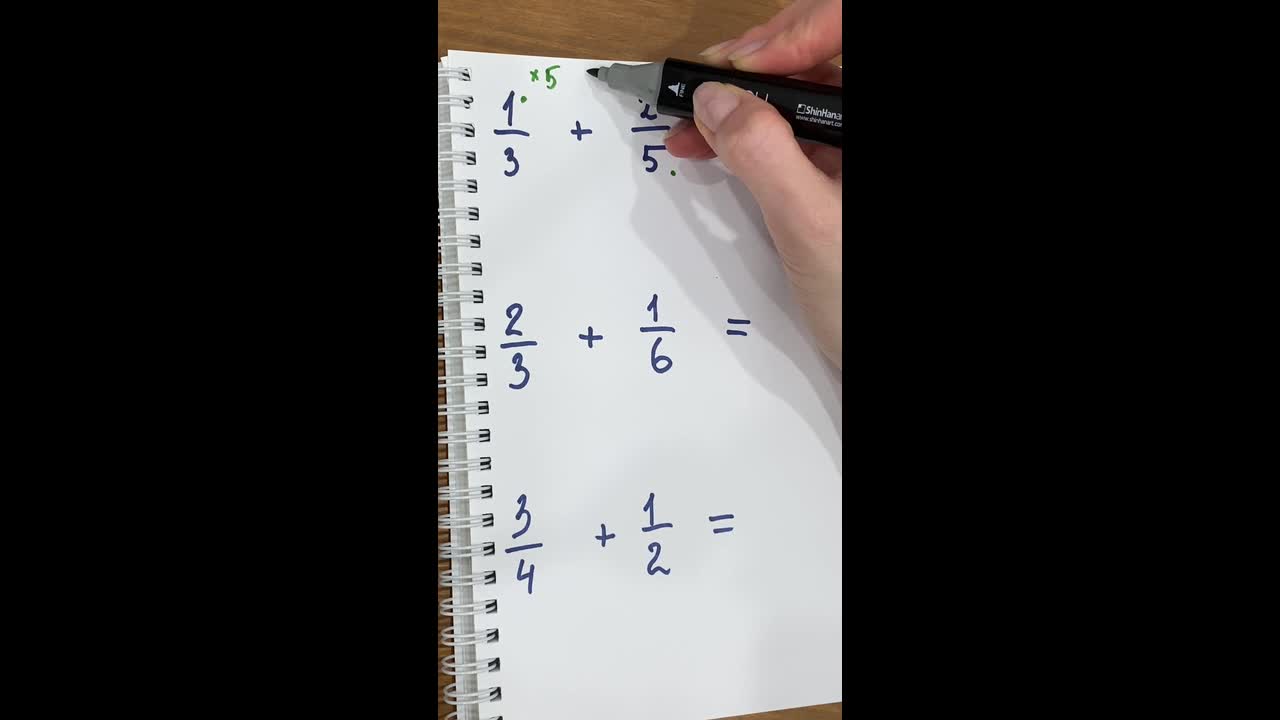 ×5
1/3 + /5
2/3 + 1/6 =
3/4 + 1/2 =
FINE
ShinHanart
www.shinhanart.com